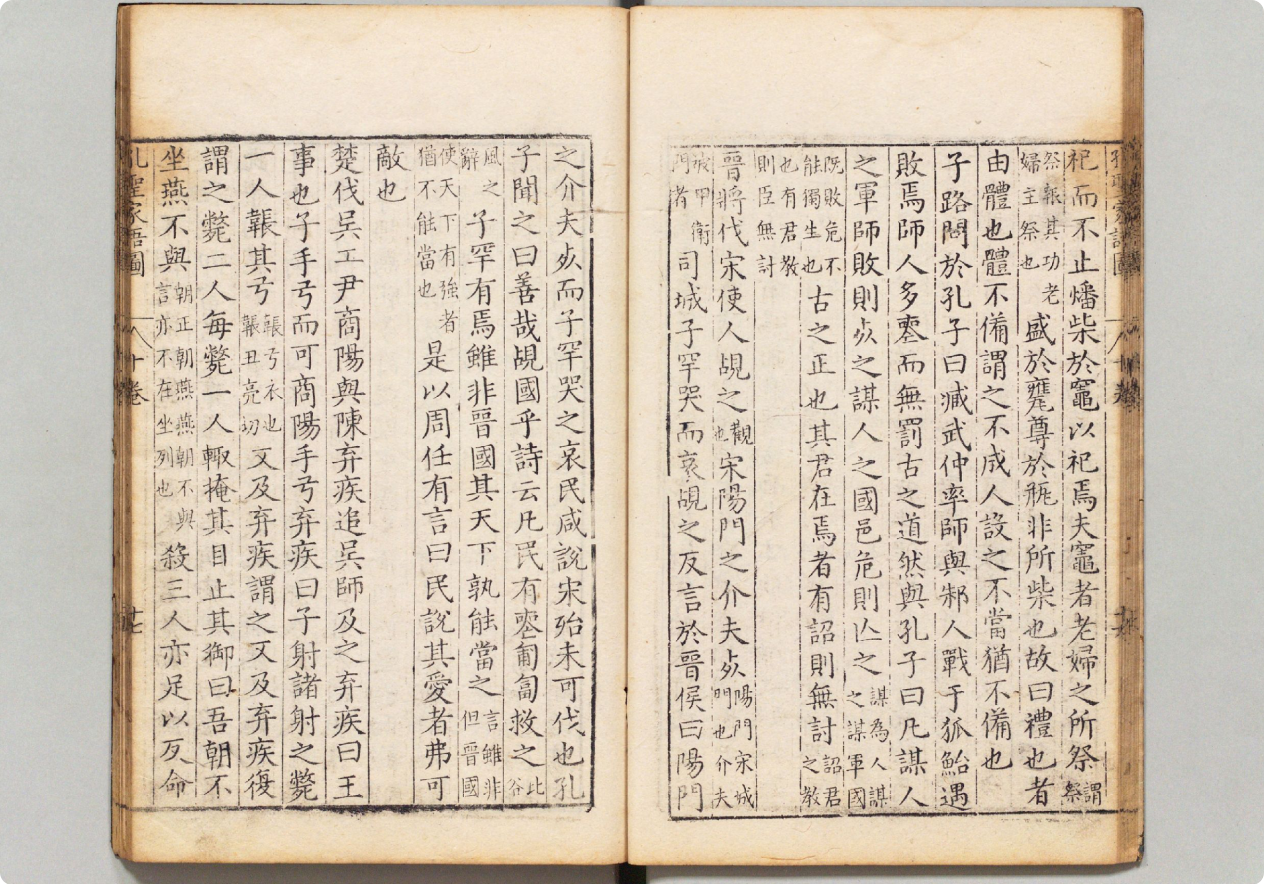 祀而不止燔柴於竈以祀焉夫竈者老婦之所祭謂祭
祭報其功老婦主祭也盛於甕尊於瓶非所柴也故曰禮也者
由體也體不備謂之不成人設之不當猶不備也
子路問於孔子曰臧武仲率師與邾人戰于狐鮐遇
敗焉師人多喪而無罰古之道然與孔子曰凡謀人
之軍師敗則死之謀人之國邑危則亾之謀為人謀之謀軍國
既敗危不能獨生也古之正也其君在焉者有詔則無討詔君之教
也有君教則臣無討
晉將伐宋使人覘之觀也宋陽門之介夫死陽門宋城門也介夫
被甲衛門者司城子罕哭而哀覘之反言於晉侯曰陽門
之介夫死而子罕哭之哀民咸說宋殆未可伐也孔
子聞之曰善哉覘國乎詩云凡民有喪匍匐救之此谷
風之辭子罕有焉雖非晉國其天下孰能當之言雖非但晉國
使天下有強者猶不能當也是以周任有言曰民說其愛者弗可
敵也
楚伐吳工尹商陽與陳弃疾追吳師及之弃疾曰王
事也子手弓而可商陽手弓弃疾曰子射諸射之斃
一人韔其弓韔弓衣也韔丑亮切又及弃疾謂之又及弃疾復
謂之斃二人每斃一人輙掩其目止其御曰吾朝不
坐燕不與朝正朝燕燕朝不與言亦不在坐列也殺三人亦足以反命
孔聖家語圖 八十卷 廿七